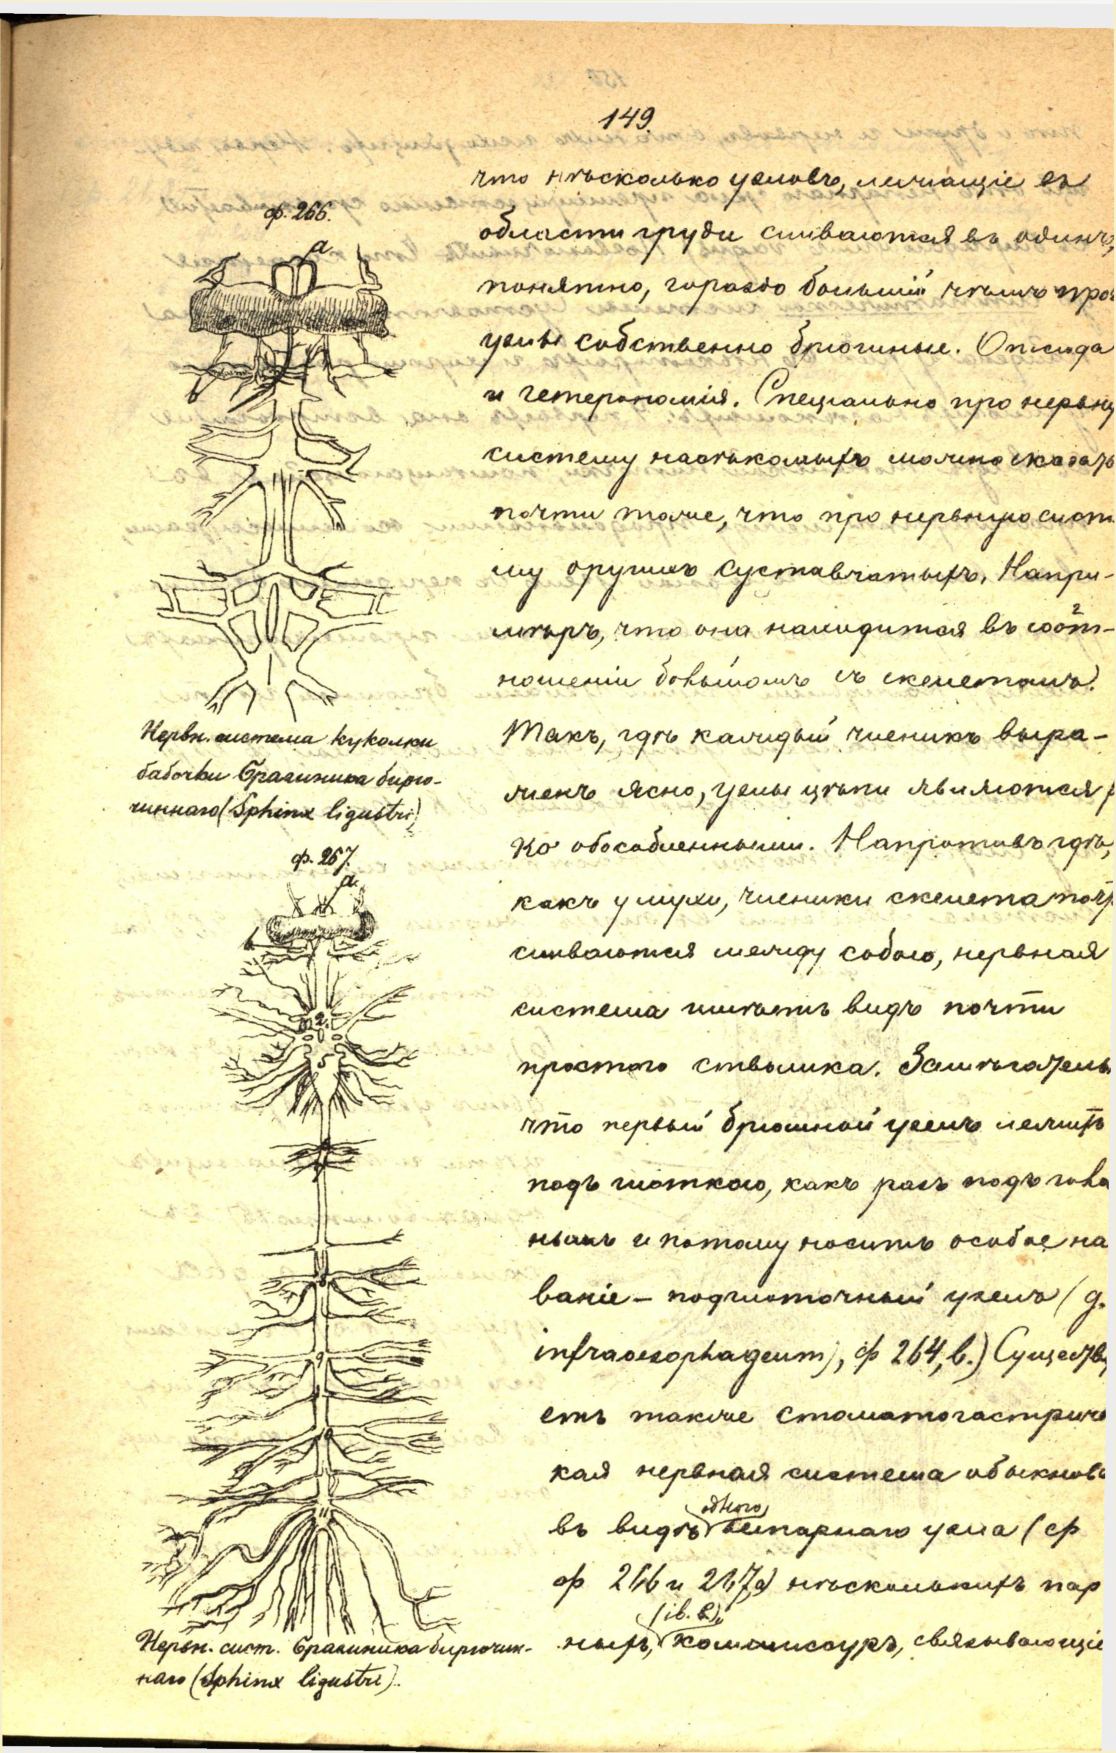 149.
что нѣсколько узловъ, лежащіе въ
области груди сливаются въ одинъ,
понятно, гораздо большій чѣмъ про
узлы собственно брюшные. Отсюда
и гетерономія. Спеціально про нервну
систему насѣкомыхъ можно сказать
почти тоже, что про нервную систе
му другихъ суставчатыхъ. Напри-
мѣръ, что она находится въ соот-
ношеніи большомъ съ скелетомъ.
Такъ, гдѣ каждый членикъ выра-
женъ ясно, узлы цѣпи являются р
ко обособленными. Напротивъ гдѣ,
какъ у мухи, членики скелета почт
сливаются между собою, нервная
система имѣетъ видъ почти
простого стволика. Замѣчатель
что первый брюшной узелъ лежитъ
подъ глоткою, какъ разъ подъ голо
нымъ и потому носитъ особое на
ваніе – подглоточный узелъ (g.
infraoesophageum), ф 264, b.) Существу
етъ также стоматогастриче
кая нервная система обыкнове
въ видѣ одного непарнаго узла (ф
ф 266 и 267, a) нѣсколькихъ пар
ныхъ, (ib. b), коммиссуръ, связывающіе
ф. 266.
a
Нервн. система куколки
бабочки бражника бирю-
чиннаго (Sphinx ligustri)
ф. 267.
a.
b
2.
5
8
9
10
11
Нервн. сист. бражника бирючин-
наго (Sphinx ligustri).